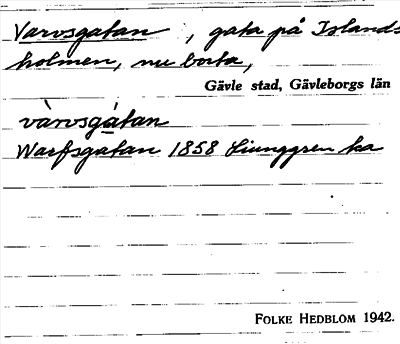 Varvsgatan, gata på Islands
holmen, nu borta,
Gävle stad, Gävleborgs län
vàrvsgá̀tan
Warfsgatan 1858 Ljunggren ka
FOLKE HEDBLOM 1942.